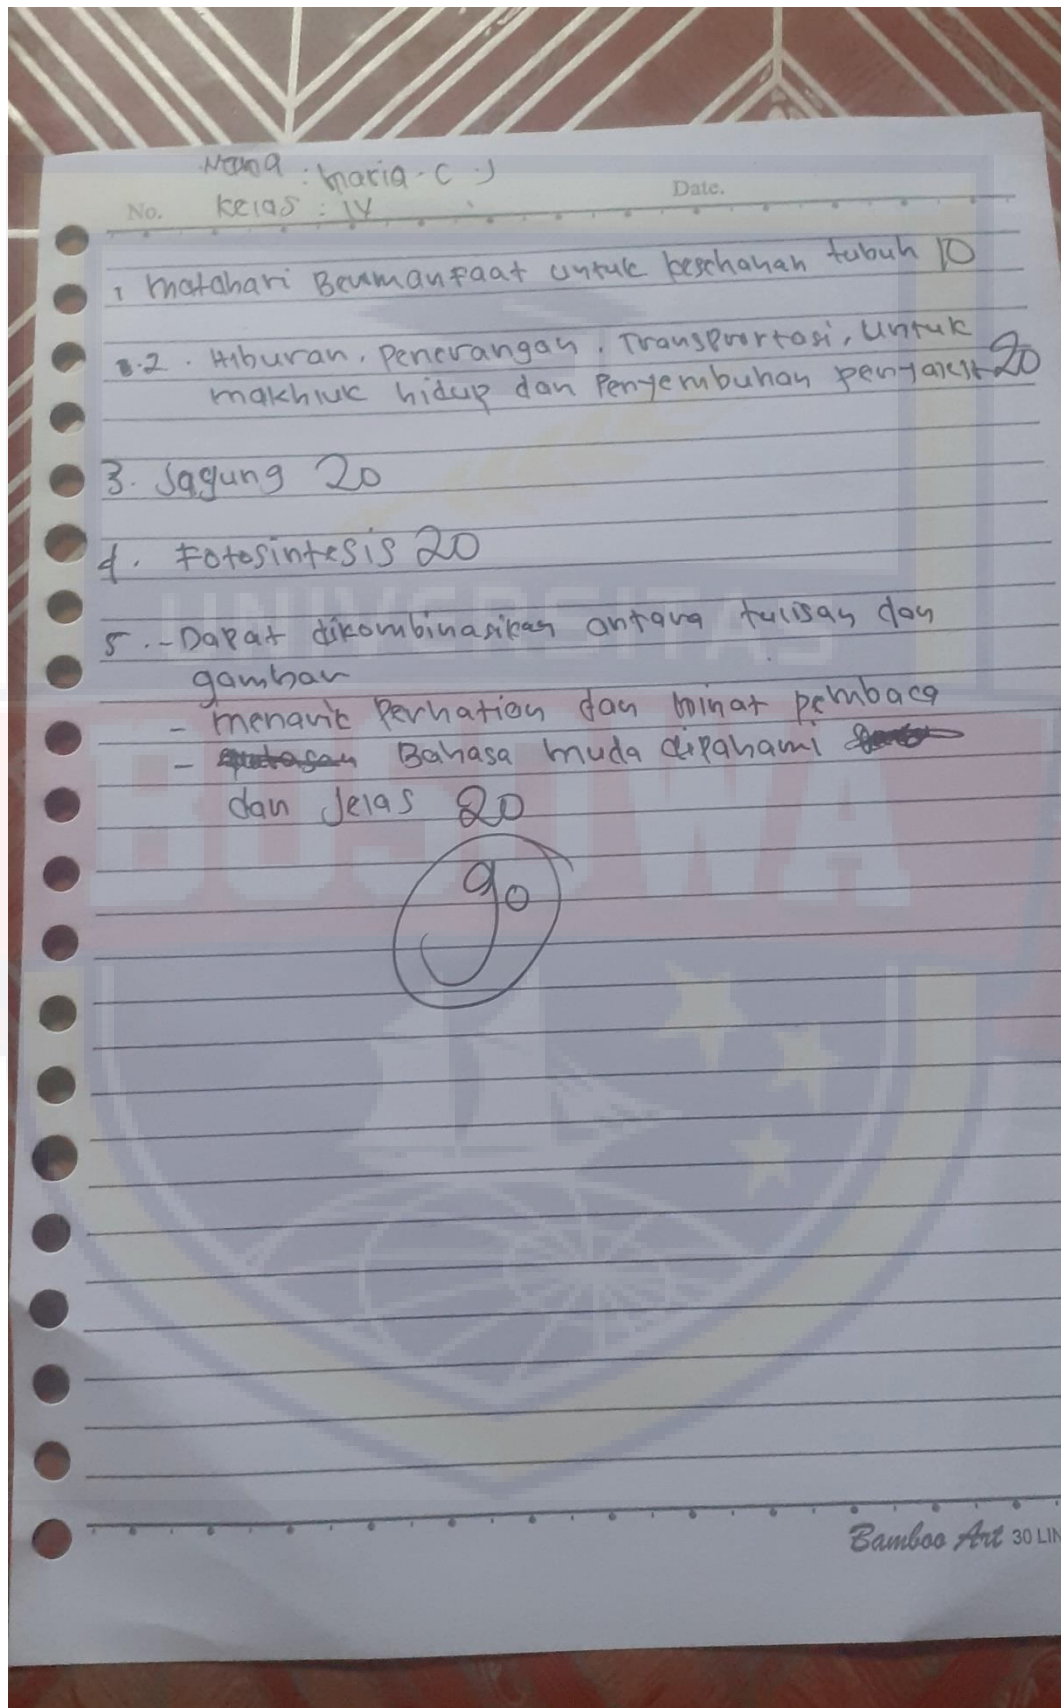 Nama : Maria. C. J
No. Kelas : IV Date.
1 Matahari Bermanfaat untuk kesehahan tubuh 10
2. Hiburan, Penerangan, Transportasi, Untuk
makhluk hidup dan Penyembuhan penyakit 20
3. Jagung 20
4. Fotosintesis 20
5. - Dapat dikombinasikan antara tulisan dan
gambar
- menarik Perhatian dan minat pembaca
- Bahasa muda dipahami
dan Jelas 20
90
UNIVERSITAS
BOSOWA
Bamboo Art 30 LIN